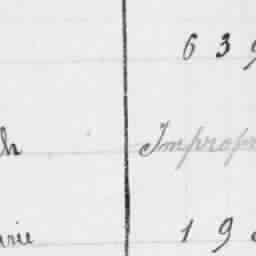 6 3 9
h Impropr
rie 1 9